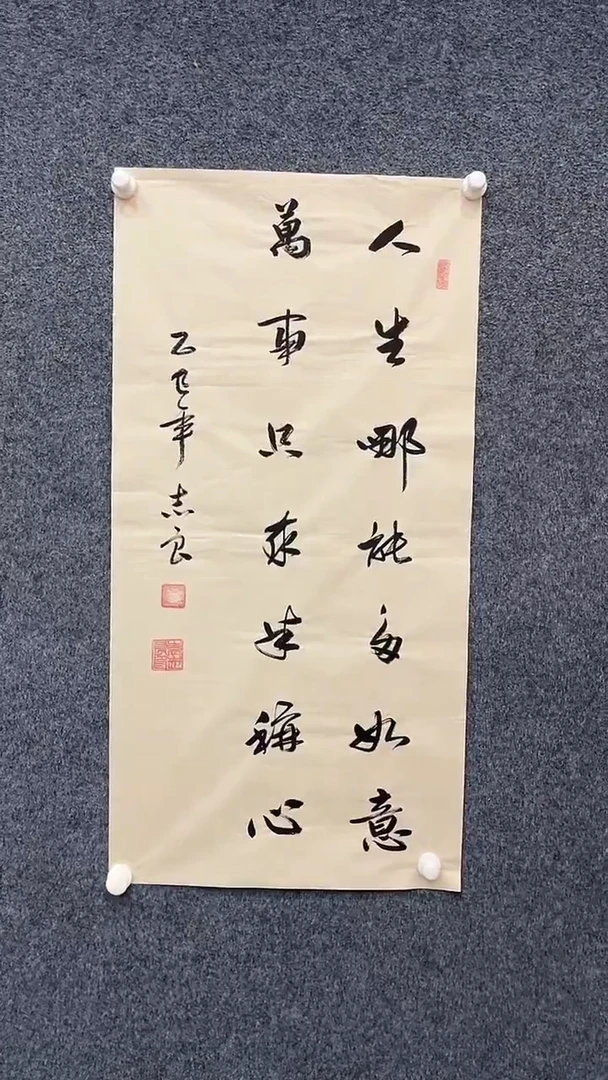 人生哪能多如意
萬事只求半稱心
乙巳年 志良